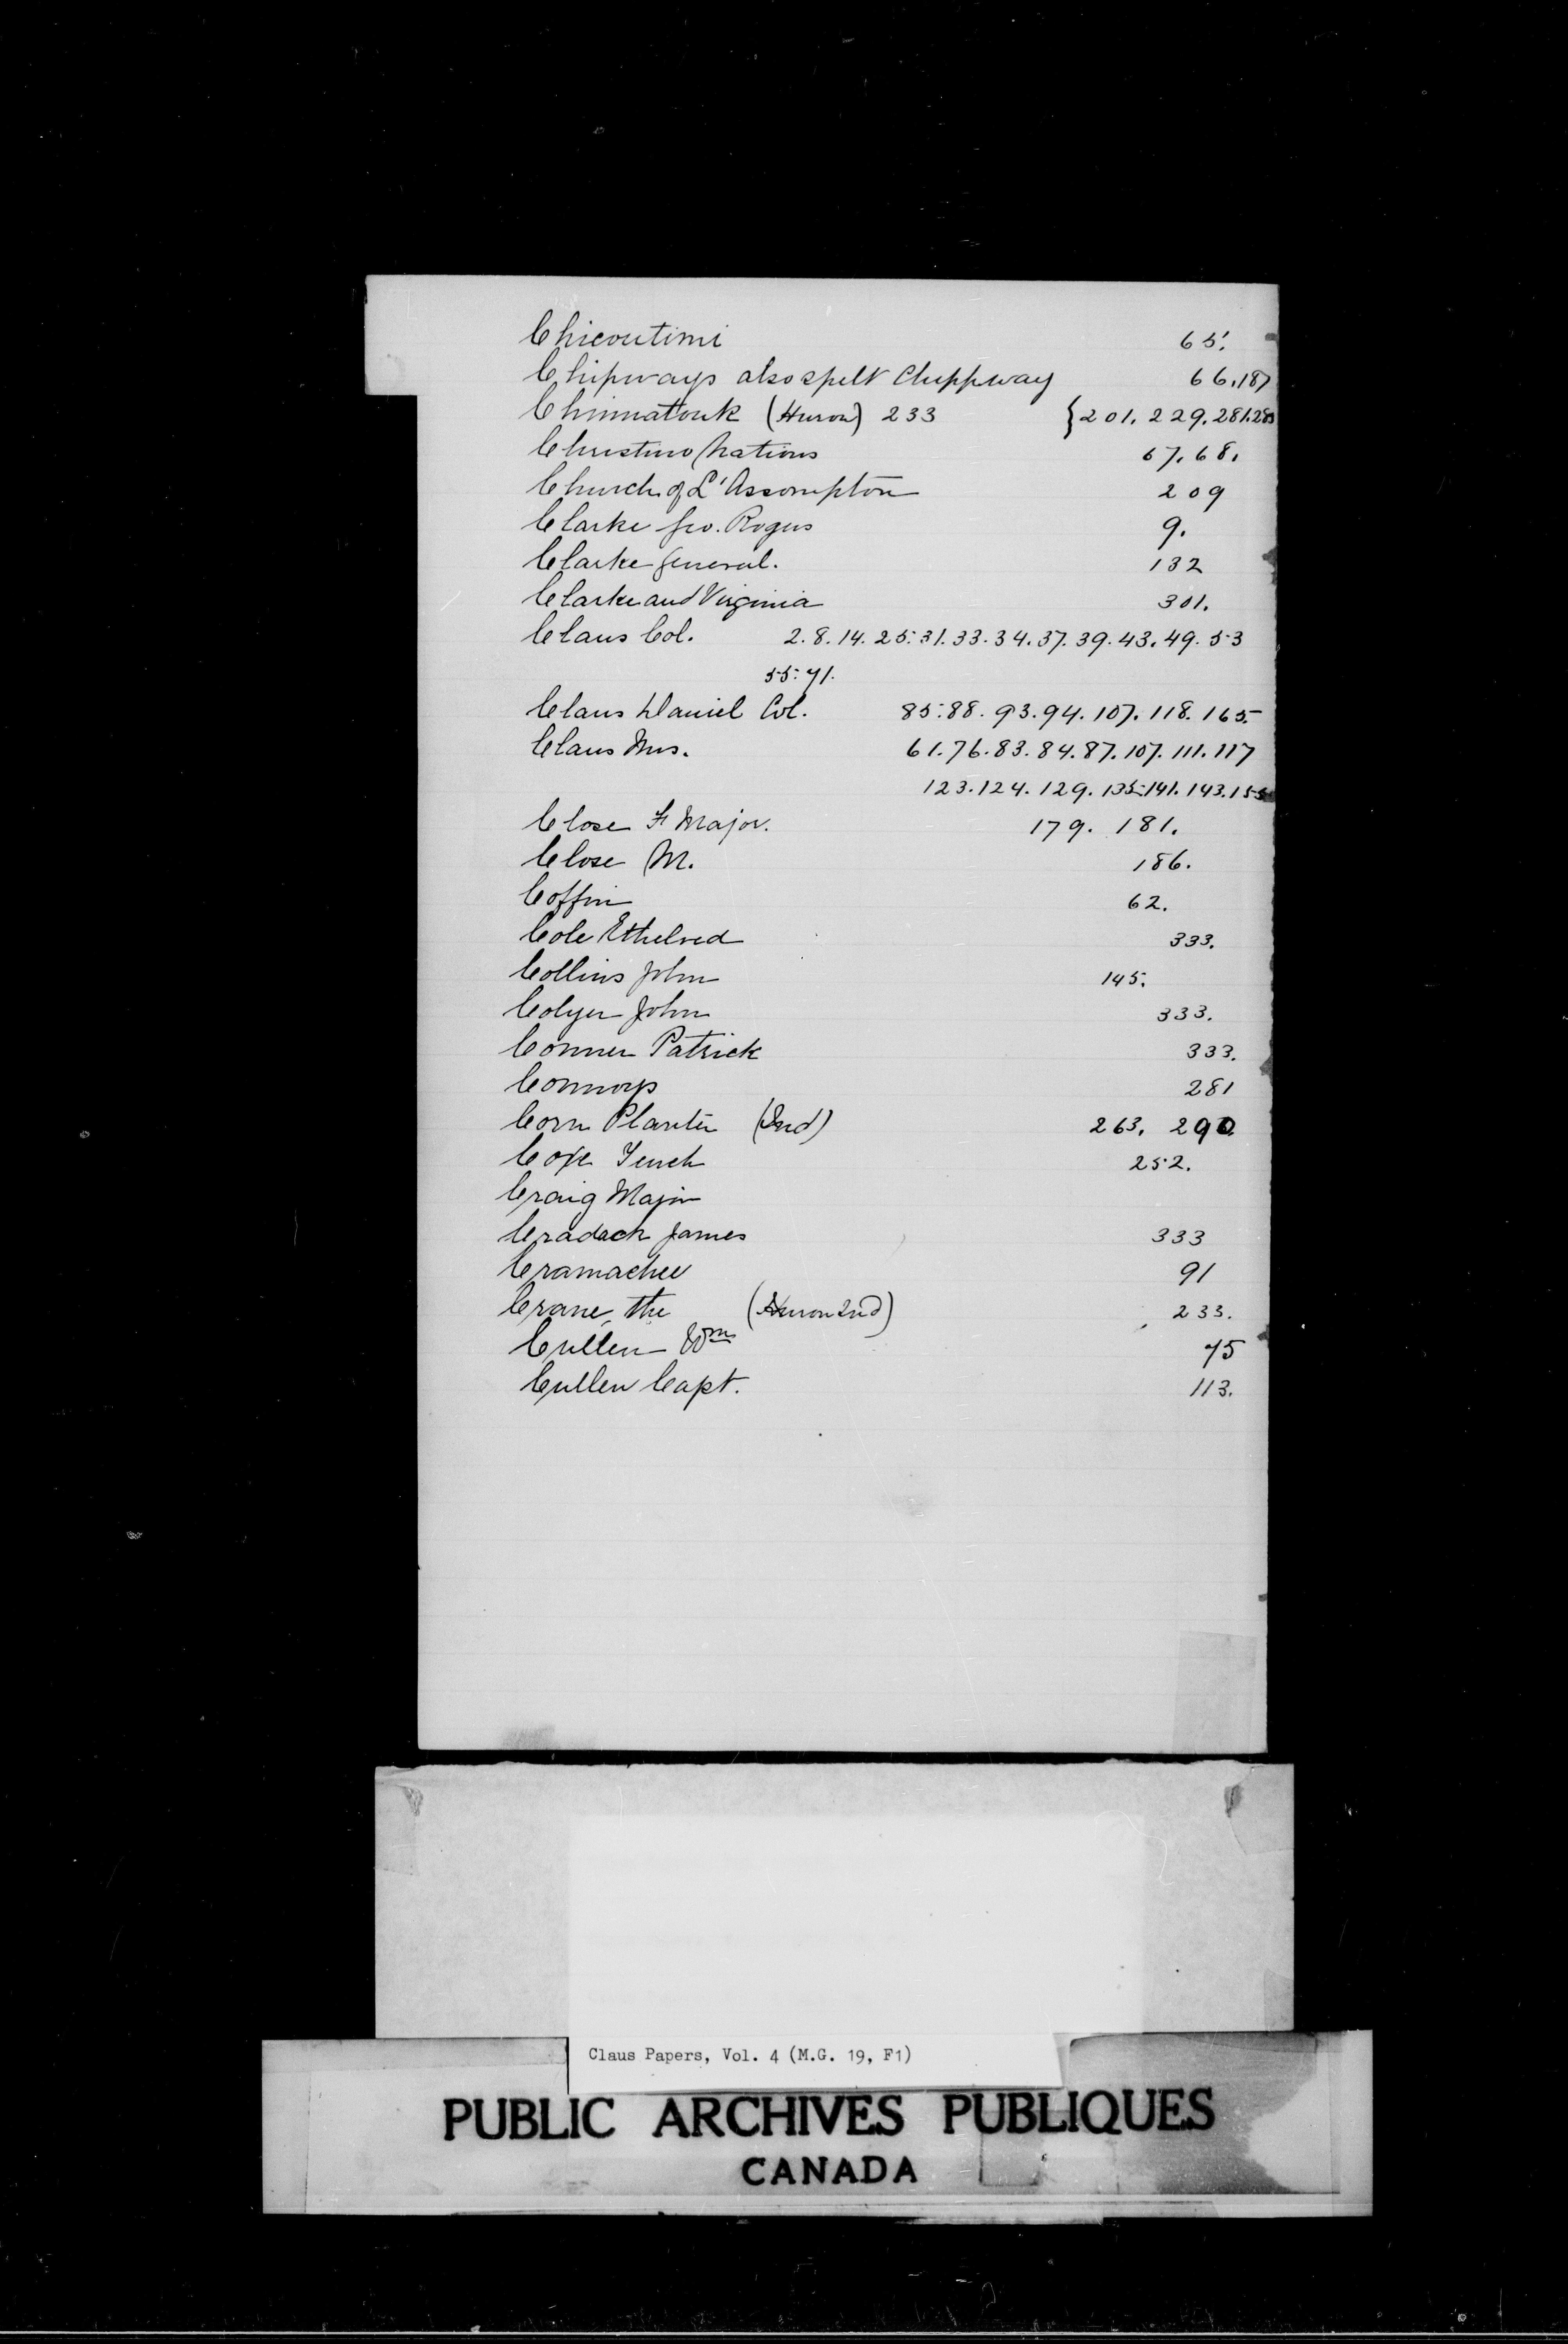 Chicoutimi 65.
Chipways also spelt Chippway 66.187
Chinnatouk (Huron) 233 {201. 229. 281.285
Christino Nations 67. 68.
Church of L'Assomption 209
Clarke Geo. Rogers 9.
Clarke General. 132
Clarke and Virginia 301.
Claus Col. 2. 8. 14. 25. 31. 33. 34. 37. 39. 43. 49. 53
55. 71.
Claus Daniel Col. 85. 88. 93. 94. 107. 118. 165.
Claus Mrs. 61. 76. 83. 84. 87. 107. 111. 117
123. 124. 129. 135. 141. 143. 155
Close F Major. 179. 181.
Close M. 186.
Coffin 62.
Cole Ethelred 333.
Collins John 145.
Colyer John 333.
Conner Patrick 333.
Connoys 281
Corn Planter (Ind) 263. 290.
Coxe Tench 252.
Craig Major
Cradack James 333
Cramachee 91
Crane, the (Huron Ind) 233.
Cullen Wm 75
Cullen Capt. 113.
Claus Papers, Vol. 4 (M.G. 19, F1)
PUBLIC ARCHIVES PUBLIQUES
CANADA